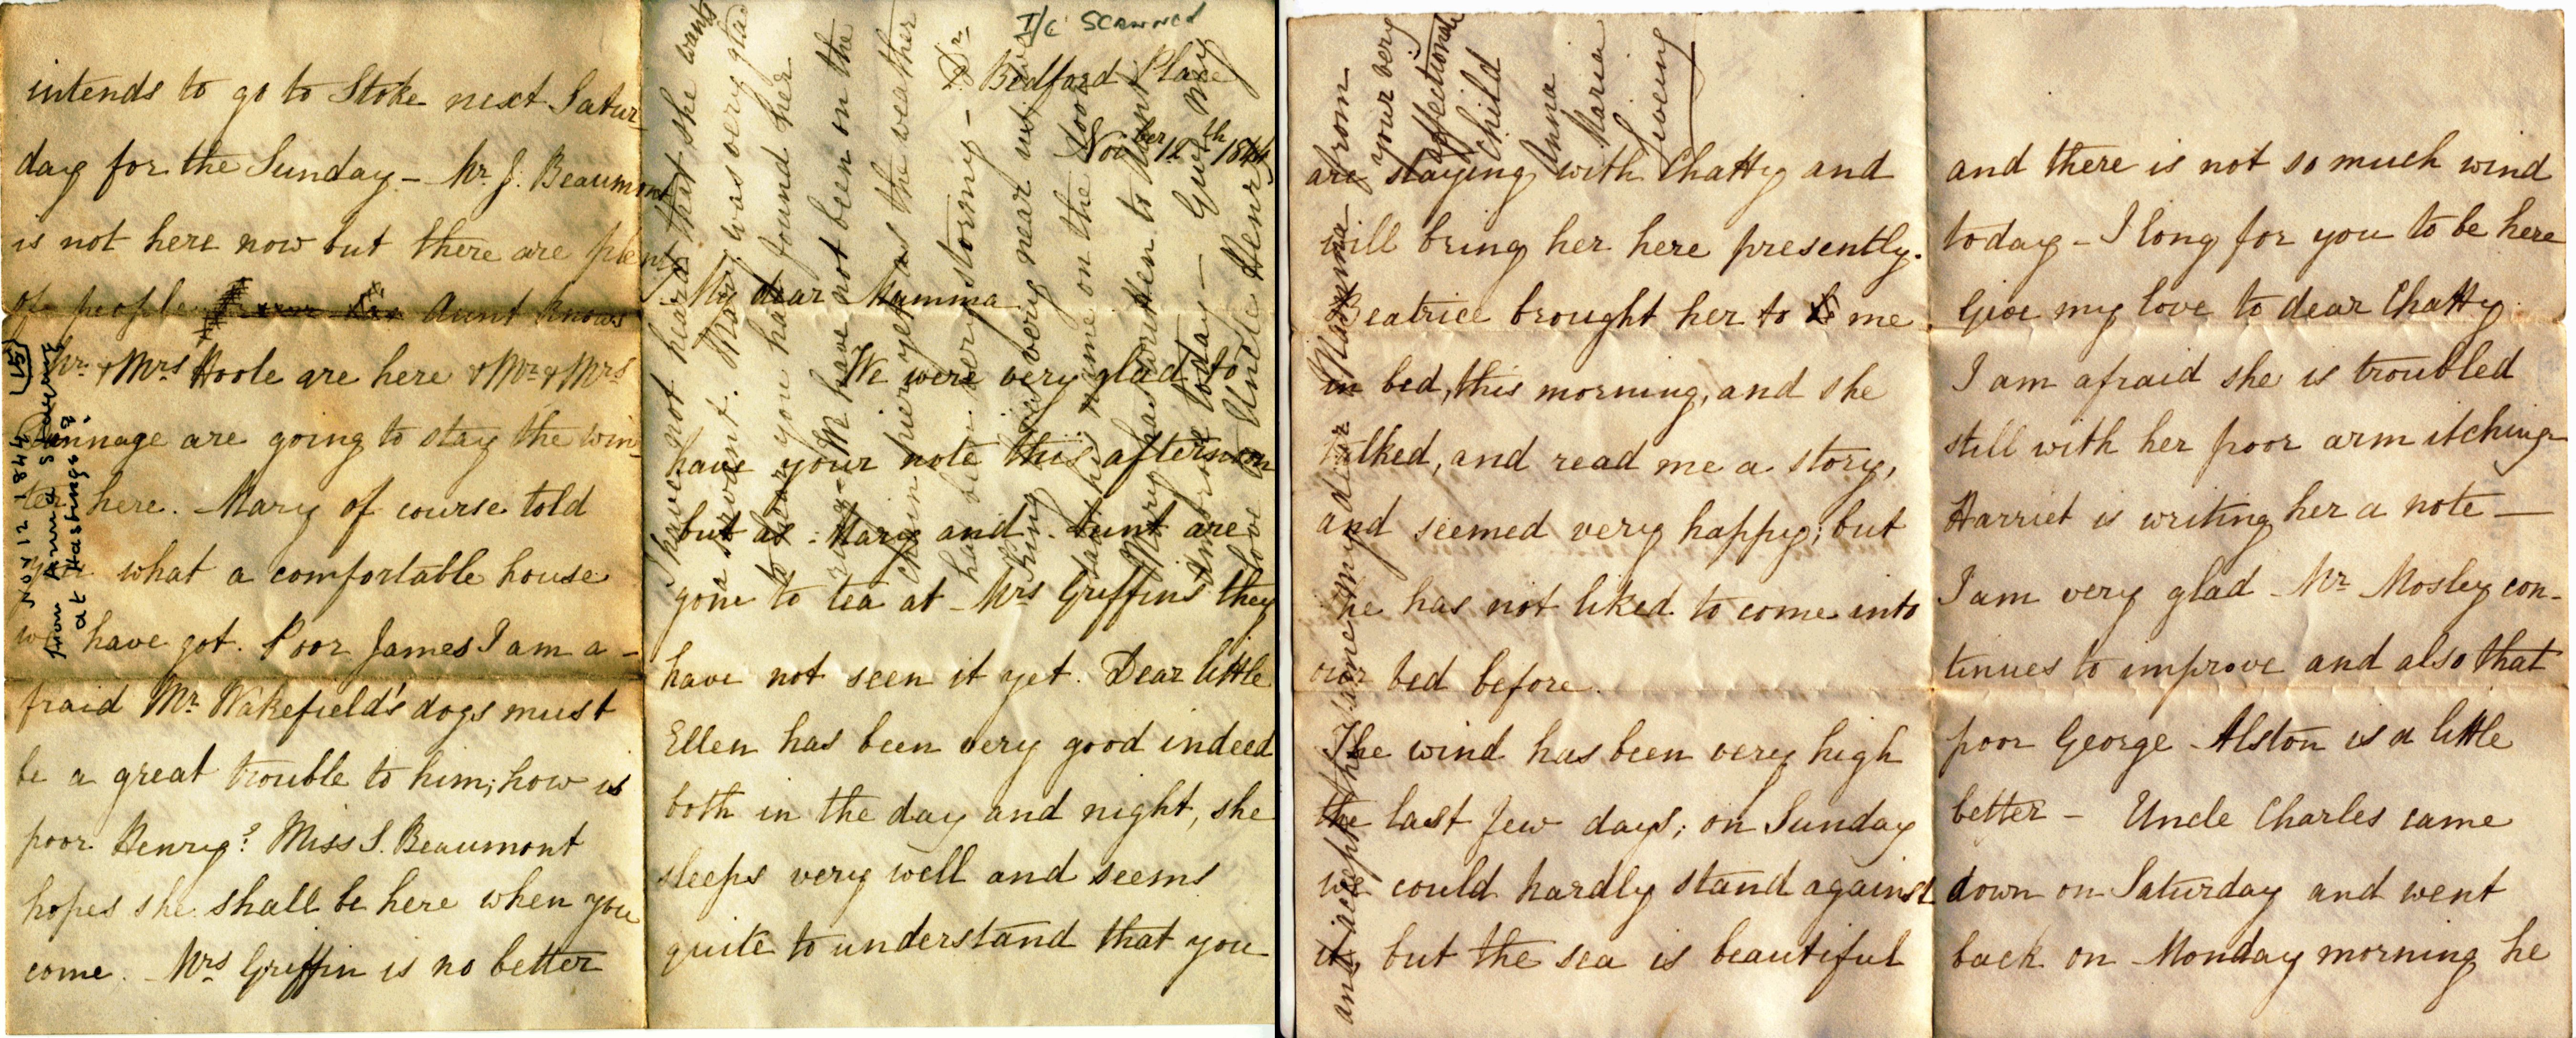 I/C SCANNED
Bedford Place
Nov^ber 12^th 1844
My dear Mamma
We were very glad to
have your note this afternoon
but as Mary and Aunt are
gone to tea at Mrs Griffins they
have not seen it yet. Dear little
Ellen has been very good indeed
both in the day and night, she
sleeps very well and seems
quite to understand that you
are staying with Chatty and
will bring her here presently.
Beatrice brought her to me
in bed, this morning, and she
talked, and read me a story,
and seemed very happy; but
she has not liked to come into
our bed before.
The wind has been very high
the last few days; on Sunday
we could hardly stand against
it, but the sea is beautiful
and there is not so much wind
today - I long for you to be here
Give my love to dear Chatty
I am afraid she is troubled
still with her poor arm itching
Harriet is writing her a note —
I am very glad Mr Mosley con-
tinues to improve and also that
poor George Alston is a little
better - Uncle Charles came
down on Saturday and went
back on Monday morning he
intends to go to Stoke next Satur
day for the Sunday - Mr J. Beaumont
is not here now but there are plenty
of people Aunt knows
Mr & Mrs Hoole are here & Mr & Mrs
are going to stay the win
ter here. Mary of course told
you what a comfortable house
we have got. Poor James I am a-
fraid Mr Wakefield's dogs must
be a great trouble to him; how is
poor Henry? Miss S. Beaumont
hopes she shall be here when you
come. Mrs Griffin is no better
I have not heard that she wants
a servant. Mary was very glad
to hear you had found her
ring - We have not been on the
here yet as the weather
has been very stormy - Dr
King very near us
name on the door
Mary has written to Aunt
today - Give my
love to Uncle Henry
and accept the same my dear Mamma from
your very
affectionate
Child
Anna
Maria
Giveen
Nov 12 1844 (15)
from Anna
at Hastings?